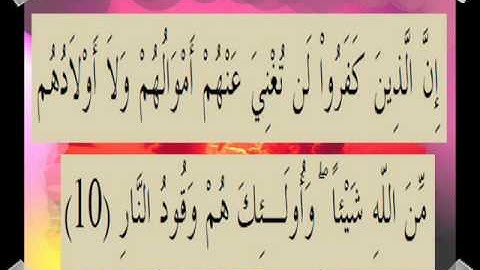 إِنَّ الَّذِينَ كَفَرُواْ لَن تُغْنِيَ عَنْهُمْ أَمْوَالُهُمْ وَلاَ أَوْلاَدُهُم
مِّنَ اللّهِ شَيْئاً ۖ وَأُولَـئِكَ هُمْ وَقُودُ النَّارِ (10)